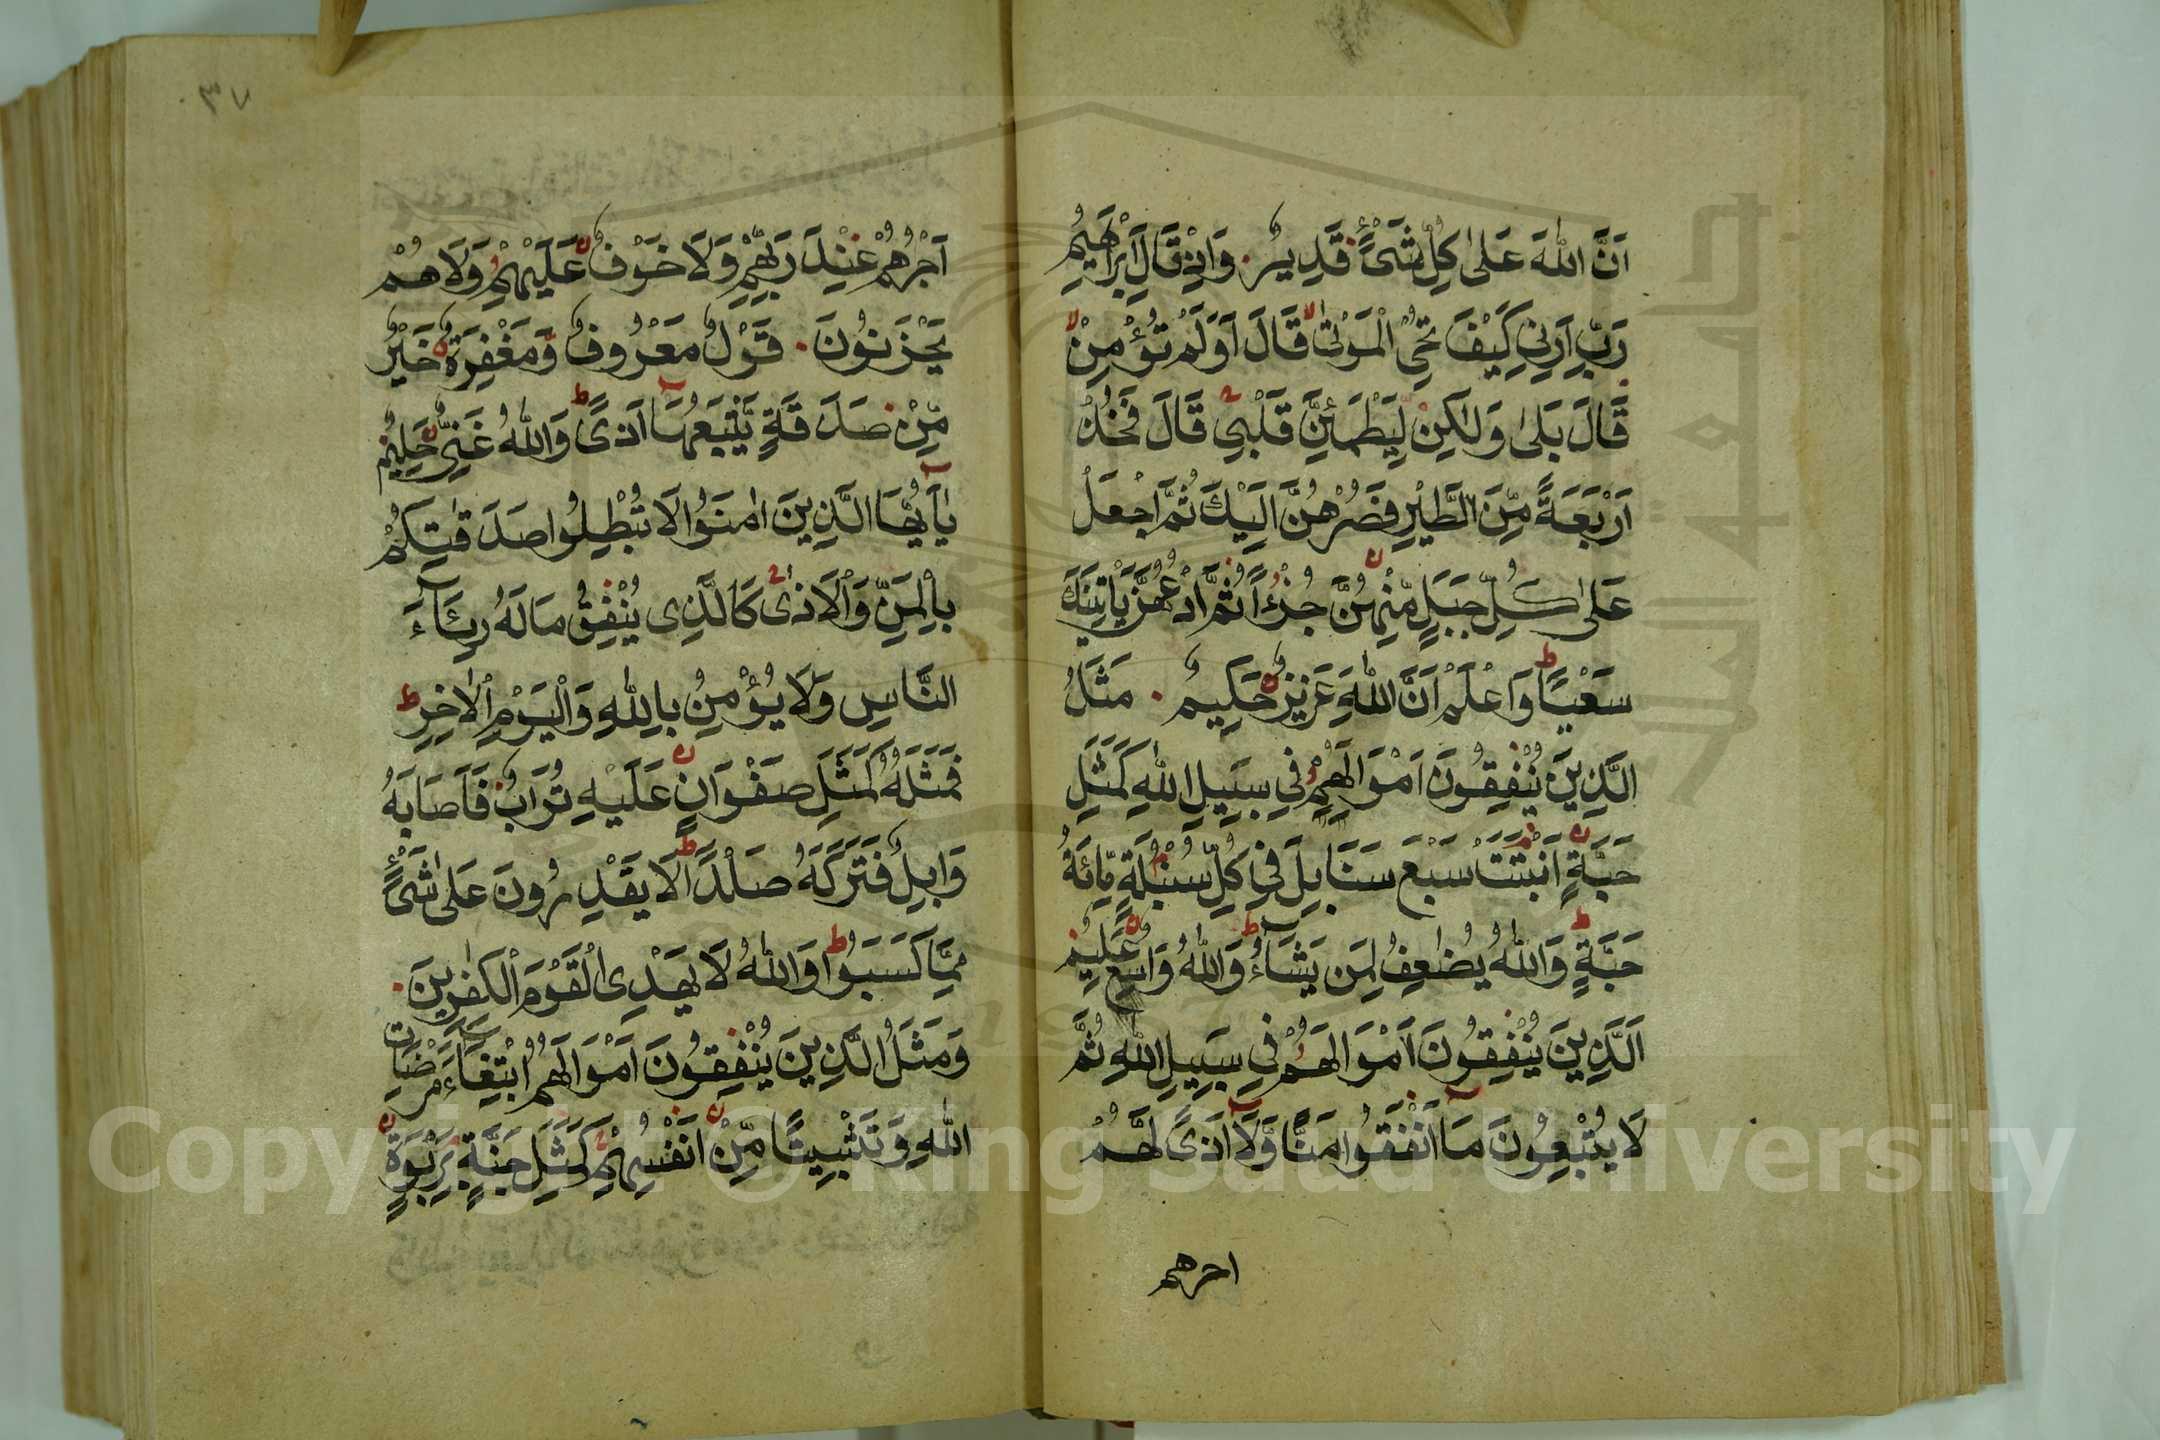 اَنَّ اللّٰهَ عَلٰى كُلِّ شَىْءٍ قَدِيرٌ وَاِذْ قَالَ اِبْرٰهٖيمُ
رَبِّ اَرِنِى كَيْفَ تُحْىِ الْمَوْتٰى قَالَ اَوَلَمْ تُؤْمِنْ
قَالَ بَلٰى وَلٰكِنْ لِّيَطْمَئِنَّ قَلْبِى قَالَ فَخُذْ
اَرْبَعَةً مِّنَ الطَّيْرِ فَصُرْهُنَّ اِلَيْكَ ثُمَّ اجْعَلْ
عَلٰى كُلِّ جَبَلٍ مِّنْهُنَّ جُزْءًا ثُمَّ ادْعُهُنَّ يَاْتِينَكَ
سَعْيًا وَاعْلَمْ اَنَّ اللّٰهَ عَزِيزٌ حَكِيمٌ مَثَلُ
الَّذِينَ يُنْفِقُونَ اَمْوَالَهُمْ فِى سَبِيلِ اللّٰهِ كَمَثَلِ
حَبَّةٍ اَنْبَتَتْ سَبْعَ سَنَابِلَ فِى كُلِّ سُنْبُلَةٍ مِّائَةُ
حَبَّةٍ وَاللّٰهُ يُضٰعِفُ لِمَن يَشَآءُ وَاللّٰهُ وَاسِعٌ عَلِيمٌ
اَلَّذِينَ يُنْفِقُونَ اَمْوَالَهُمْ فِى سَبِيلِ اللّٰهِ ثُمَّ
لَا يُتْبِعُونَ مَآ اَنْفَقُوا مَنًّا وَّلَآ اَذًى لَّهُمْ
اجرهم
٣٧
اَجْرُهُمْ عِنْدَ رَبِّهِمْ وَلَا خَوْفٌ عَلَيْهِمْ وَلَا هُمْ
يَحْزَنُونَ قَوْلٌ مَعْرُوفٌ وَّمَغْفِرَةٌ خَيْرٌ
مِّنْ صَدَقَةٍ يَّتْبَعُهَآ اَذًى وَاللّٰهُ غَنِىٌّ حَلِيمٌ
يٰٓاَيُّهَا الَّذِينَ اٰمَنُوا لَا تُبْطِلُوا صَدَقٰتِكُمْ
بِالْمَنِّ وَالْاَذٰى كَالَّذِى يُنْفِقُ مَالَهُ رِئَآءَ
النَّاسِ وَلَا يُؤْمِنُ بِاللّٰهِ وَالْيَوْمِ الْاٰخِرِ
فَمَثَلُهُ كَمَثَلِ صَفْوَانٍ عَلَيْهِ تُرَابٌ فَاَصَابَهُ
وَابِلٌ فَتَرَكَهُ صَلْدًا لَا يَقْدِرُونَ عَلٰى شَىْءٍ
مِّمَّا كَسَبُوا وَاللّٰهُ لَا يَهْدِى الْقَوْمَ الْكٰفِرِينَ
وَمَثَلُ الَّذِينَ يُنْفِقُونَ اَمْوَالَهُمُ ابْتِغَآءَ مَرْضَاتِ
اللّٰهِ وَتَثْبِيتًا مِّنْ اَنْفُسِهِمْ كَمَثَلِ جَنَّةٍ بِرَبْوَةٍ
Copyright © King Saud University